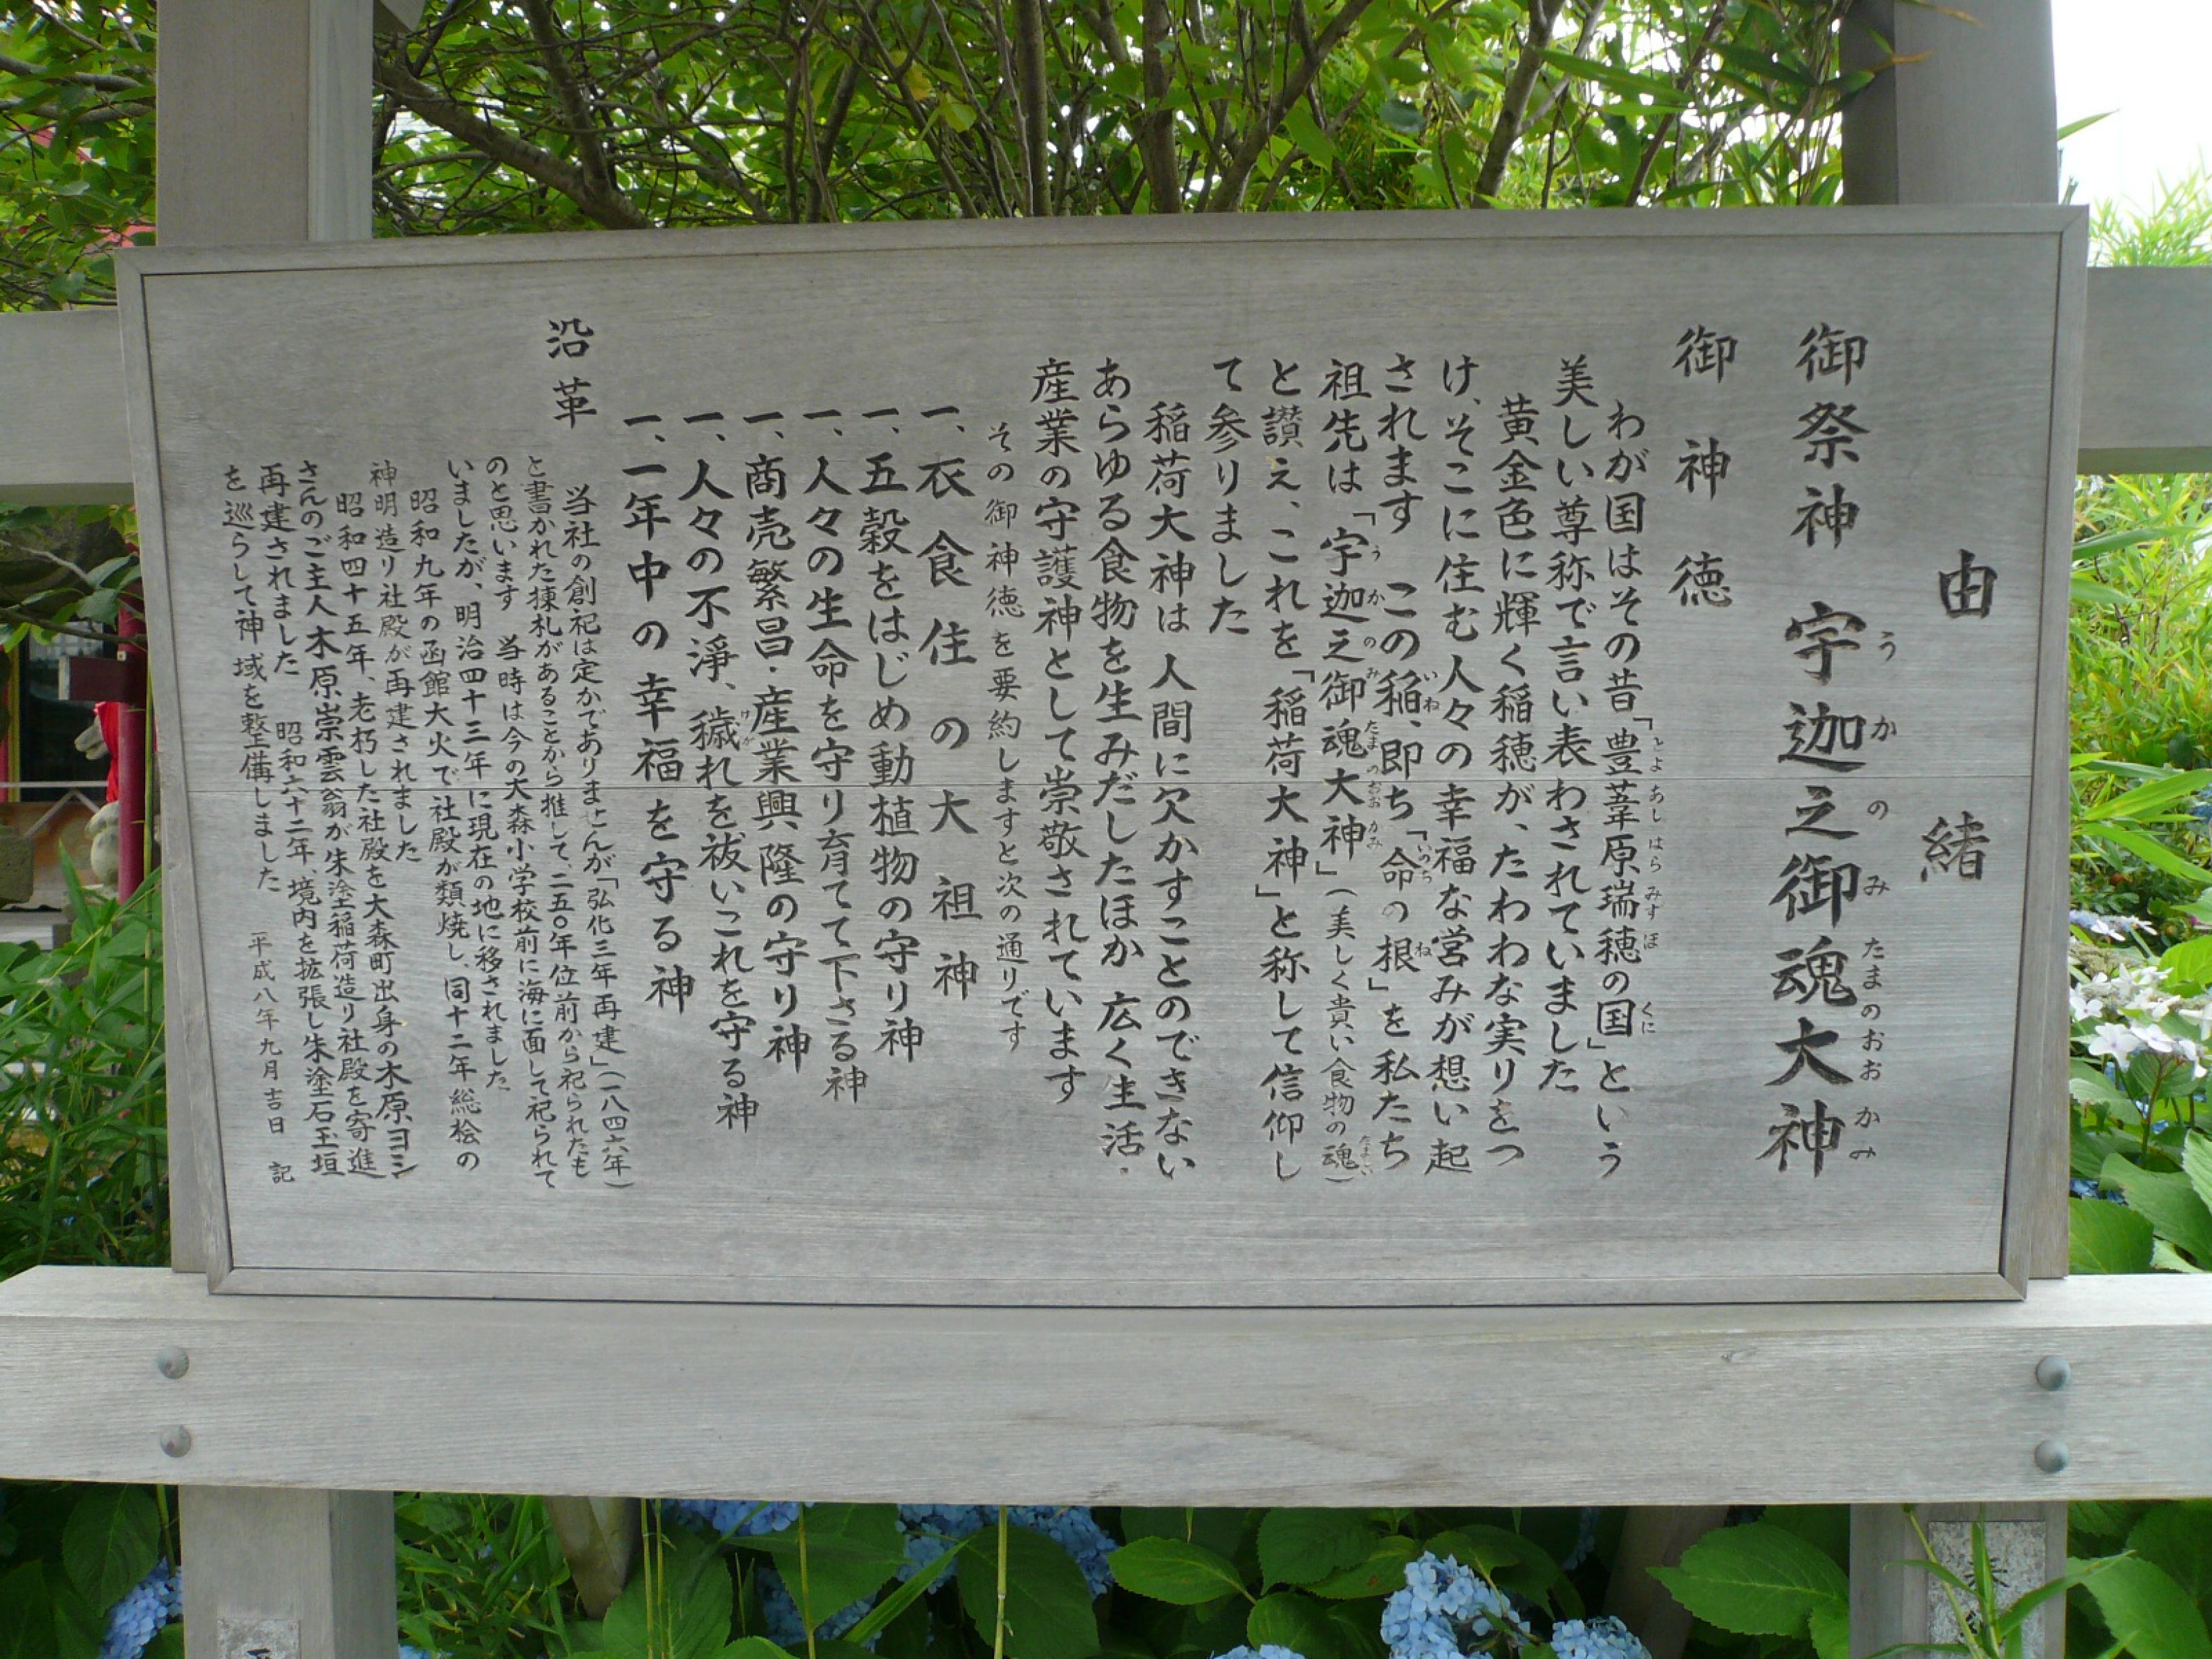 由緒
御祭神 宇迦之御魂大神
御神徳
わが国はその昔「豊葦原瑞穂の国」という
美しい尊称で言い表わされていました
黄金色に輝く稲穂が、たわわな実りをつ
け、そこに住む人々の幸福な営みが想い起
されます この稲、即ち「命の根」を私たち
祖先は「宇迦之御魂大神」(美しく貴い食物の魂)
と讃え、これを「稲荷大神」と称して信仰し
て参りました
稲荷大神は人間に欠かすことのできない
あらゆる食物を生みだしたほか広く生活・
産業の守護神として崇敬されています
その御神徳を要約しますと次の通りです
一、衣食住の大祖神
一、五穀をはじめ動植物の守り神
一、人々の生命を守り育てて下さる神
一、商売繁昌・産業興隆の守り神
一、人々の不淨、穢れを祓いこれを守る神
一、一年中の幸福を守る神
沿革
当社の創祀は定かでありませんが「弘化三年再建」(一八四六年)
と書かれた棟札があることから推して、二五〇年位前から祀られたも
のと思います 当時は今の大森小学校前に海に面して祀られて
いましたが、明治四十三年に現在の地に移されました
昭和九年の函館大火で社殿が類焼し、同十二年総桧の
神明造り社殿が再建されました
昭和四十五年、老朽した社殿を大森町出身の木原ヨシ
さんのご主人木原崇雲翁が朱塗稲荷造り社殿を寄進
再建されました 昭和六十二年、境内を拡張し朱塗石玉垣
を巡らして神域を整備しました
平成八年九月吉日 記